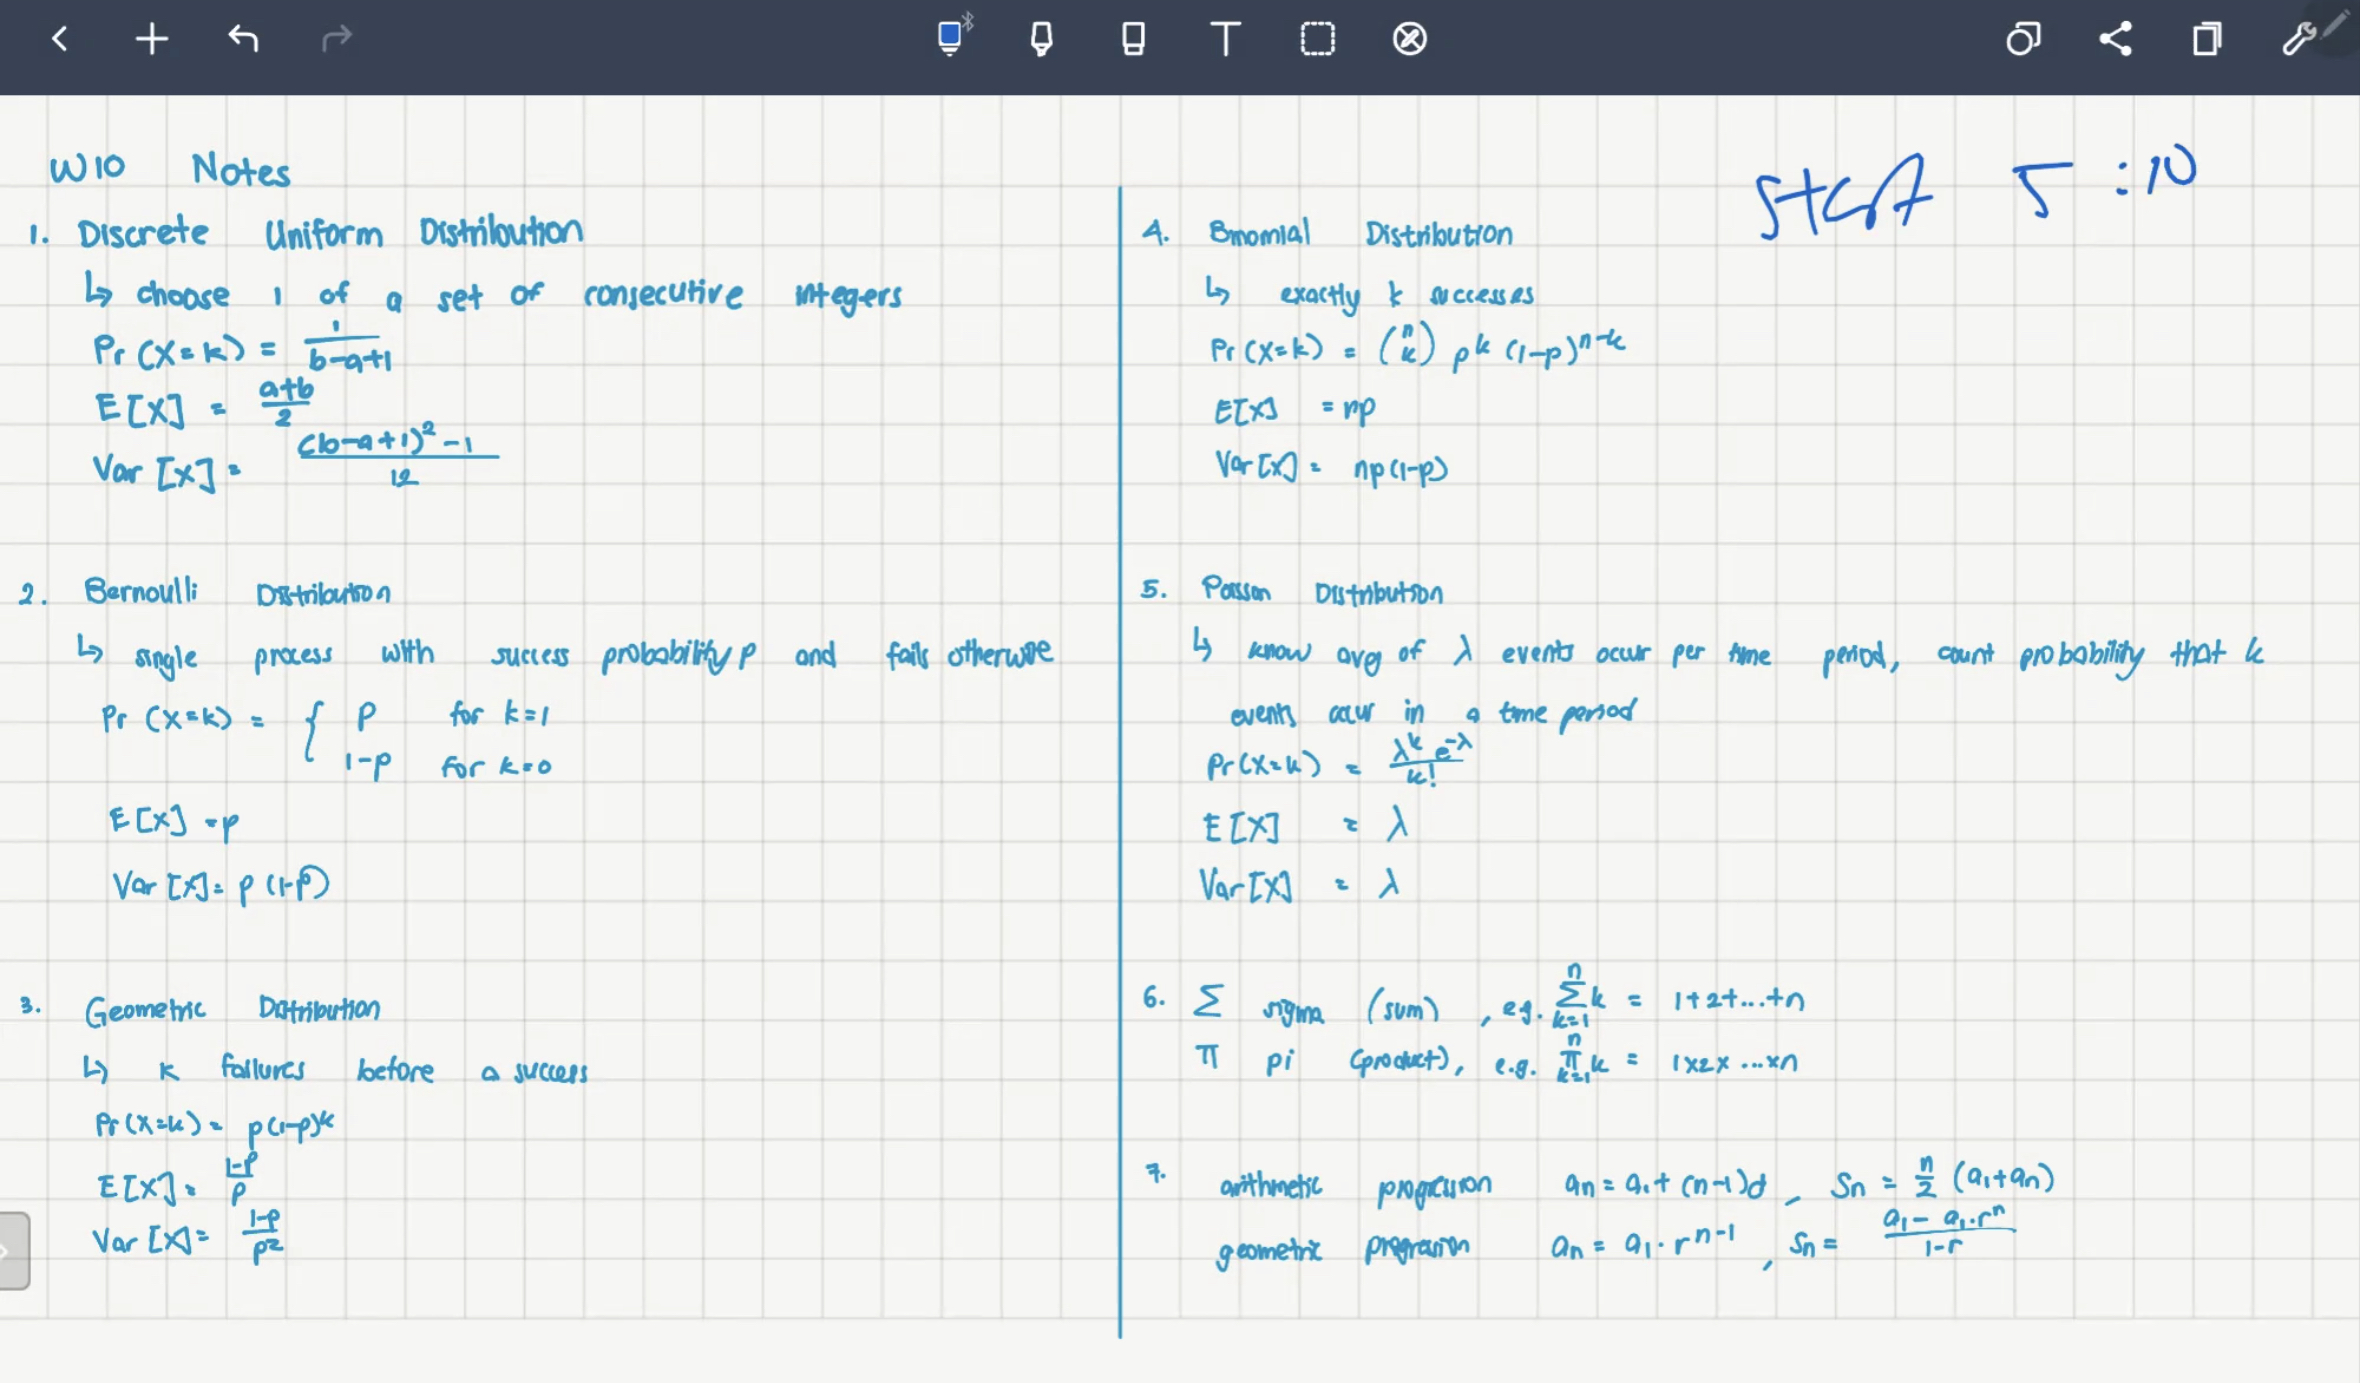 W10 Notes
1. Discrete Uniform Distribution
↳ choose 1 of a set of consecutive integers
Pr (X=k) = 1/(b-a+1)
E[X] = (a+b)/2
Var [X] = ((b-a+1)² -1)/12
2. Bernoulli Distribution
↳ single process with success probability p and fails otherwise
Pr (X=k) = { p for k=1
1-p for k=0
E[X] = p
Var [X] = p (1-p)
3. Geometric Distribution
↳ k failures before a success
Pr(X=k) = p(1-p)^k
E[X] = (1-p)/p
Var [X] = (1-p)/p²
Start 5:10
4. Binomial Distribution
↳ exactly k successes
Pr (X=k) = (n k) p^k (1-p)^(n-k)
E[X] = np
Var[X] = np(1-p)
5. Poisson Distribution
↳ know avg of λ events occur per time period, count probability that k
events occur in a time period
Pr(X=k) = (λ^k e^-λ)/k!
E[X] = λ
Var[X] = λ
6. Σ sigma (sum), e.g. Σ_{k=1}^{n} k = 1+2+...+n
π pi (product), e.g. π_{k=1}^{n} k = 1x2x...xn
7. arithmetic progression an = a₁ + (n-1)d, Sn = n/2 (a₁+an)
geometric progression an = a₁·r^(n-1), Sn = (a₁ - a₁·r^n)/(1-r)